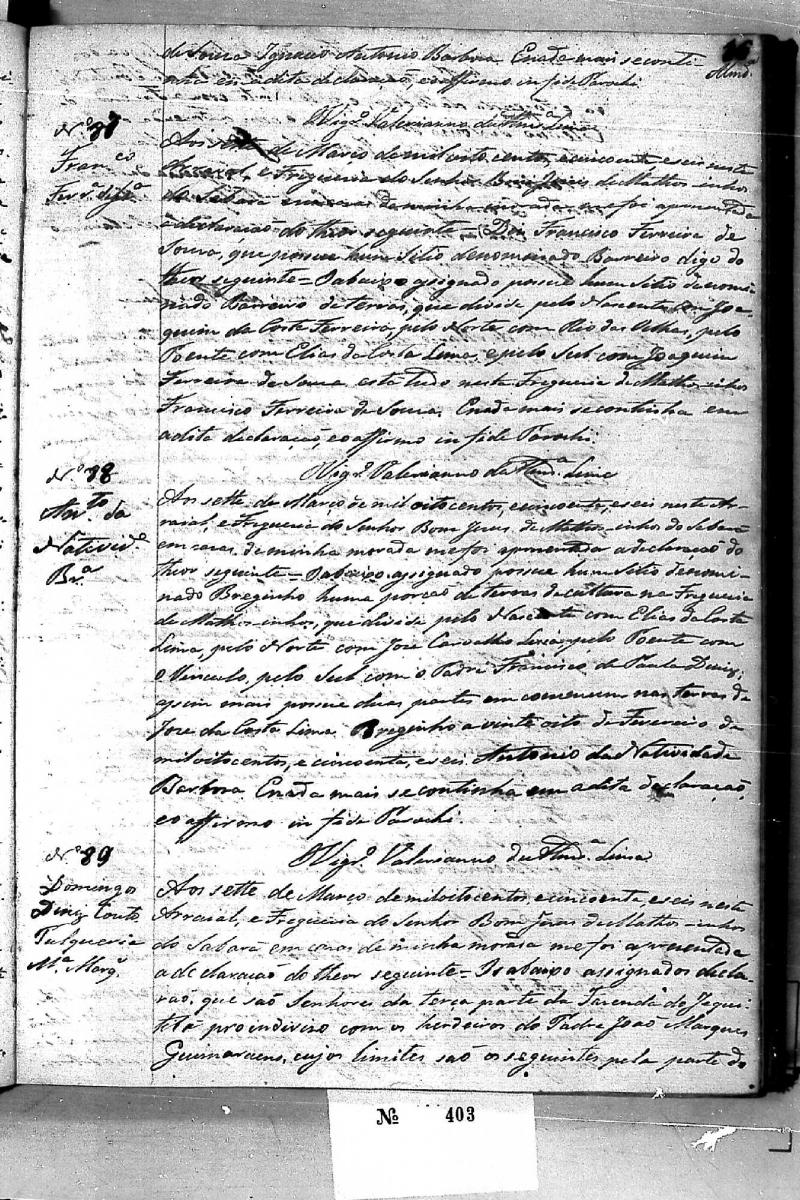 de Souza Ignacio Antonio Barboza. E nada mais se conti
nha em a dita declaração, e o affirmo in fide Parochi
Almd.ª
Vigr.º Valerianno de Almd.ª Lima
Nº 87
Fran.co
Ferr.ª de
Aos sette de Março de mil oito centos, e cincoenta e seis neste
Arraial, e Freguezia do Senhor Bom Jesus de Mathos-inhos
do Sabará em casas de minha morada me foi aprezentada
a declaração do theor seguinte = Diz Francisco Ferreira de
Souza, que possue hum Sitio denominado Barreiro digo do
theor seguinte = O abaixo asignado possue hum Sitio denomi
nado Barreiro de terras, que divise pelo Nascente com Joa
quim da Costa Ferreira, pelo Norte com Rio das Velhas, pelo
Poente com Elias da Costa Lima, e pelo Sul com Joaquim
Ferreira de Souza esta tudo nesta Freguezia de Matho-sinhos
Francisco Ferreira de Souza. E nada mais se continha em
a dita declaração, e o affirmo in fide Parochi.
Vigr.º Valerianno de Almd.ª Lima
Nº 88
Ant.to da
Nativid.e
Br.ª
Aos sette de Março de mil oito centos, e cincoenta, e seis neste Ar-
raial, e Freguezia do Senhor Bom Jesus de Matho-sinhos do Sabará
em casas de minha morada me foi aprezentada a declaração do
theor seguinte = O abaixo asignado possue hum Sitio denomi-
nado Breginho huma porção de terras de cultura na Freguezia
de Matho-sinhos, que divide pelo Nascente com Elias da Costa
Lima, pelo Norte com Joze Carvalho pelo Poente com
o Vinculo, pelo Sul com o Padre Francisco de Paula Diniz;
assim mais possue duas partes em commum nas terras de
Joze da Costa Lima. Breginho a vinte oito de Fevereiro de
mil oito centos, e cincoenta, e seis. Antonio da Natividade
Barboza. E nada mais se continha em a dita declaração,
e o affirmo in fide Parochi.
Vigr.º Valerianno de Almd.ª Lima
Nº 89
Domingos
Diniz Couto
Fulgueria
M.ª Marq.
Aos sette de Março de mil oito centos, e cincoenta, e seis neste
Arraial, e Freguezia do Senhor Bom Jesus de Matho-sinhos
do Sabará em casas de minha morada me foi aprezentada
a declaração do theor seguinte = Os abaixo assignados decla-
rão, que são Senhores da terça parte da Fazenda do Jequi-
tibá pro indiviso com os herdeiros do Padre João Marques
Guimaraens, cujos limites são os seguintes pela parte do
Nº 403